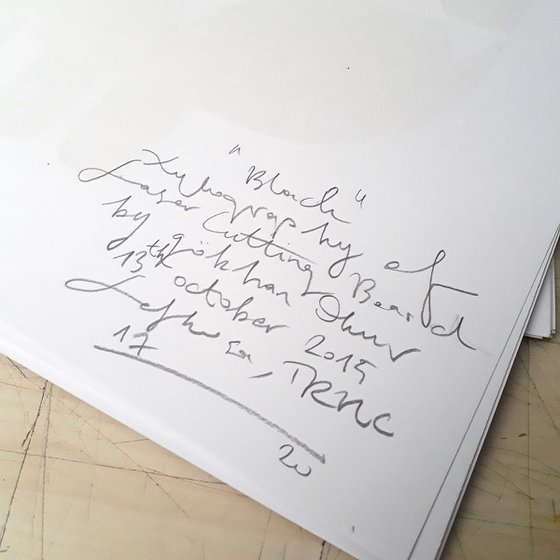 "Black"
Xylography of
Laser Cutting Board
by gökhan Okur
13th october 2019
Lefkoşa, TRNC
17
20